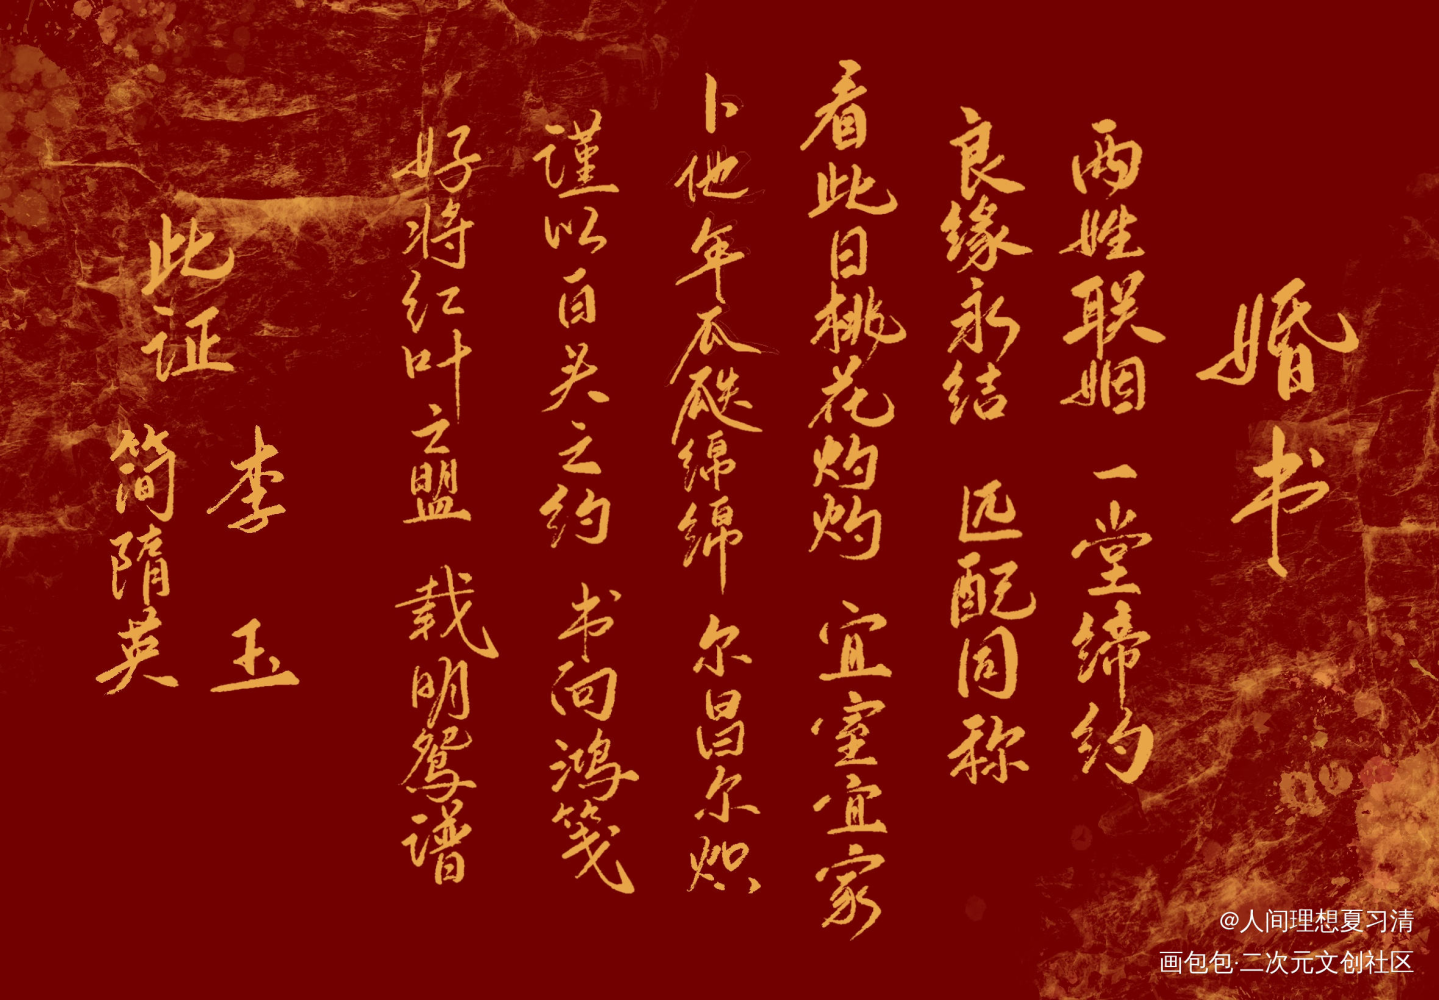 婚书
两姓联姻 一堂缔约
良缘永结 匹配同称
看此日桃花灼灼 宜室宜家
卜他年瓜瓞绵绵 尔昌尔炽
谨以白头之约 书向鸿笺
好将红叶之盟 载明鸳谱
此证
李玉
简隋英
@人间理想夏习清
画包包·二次元文创社区